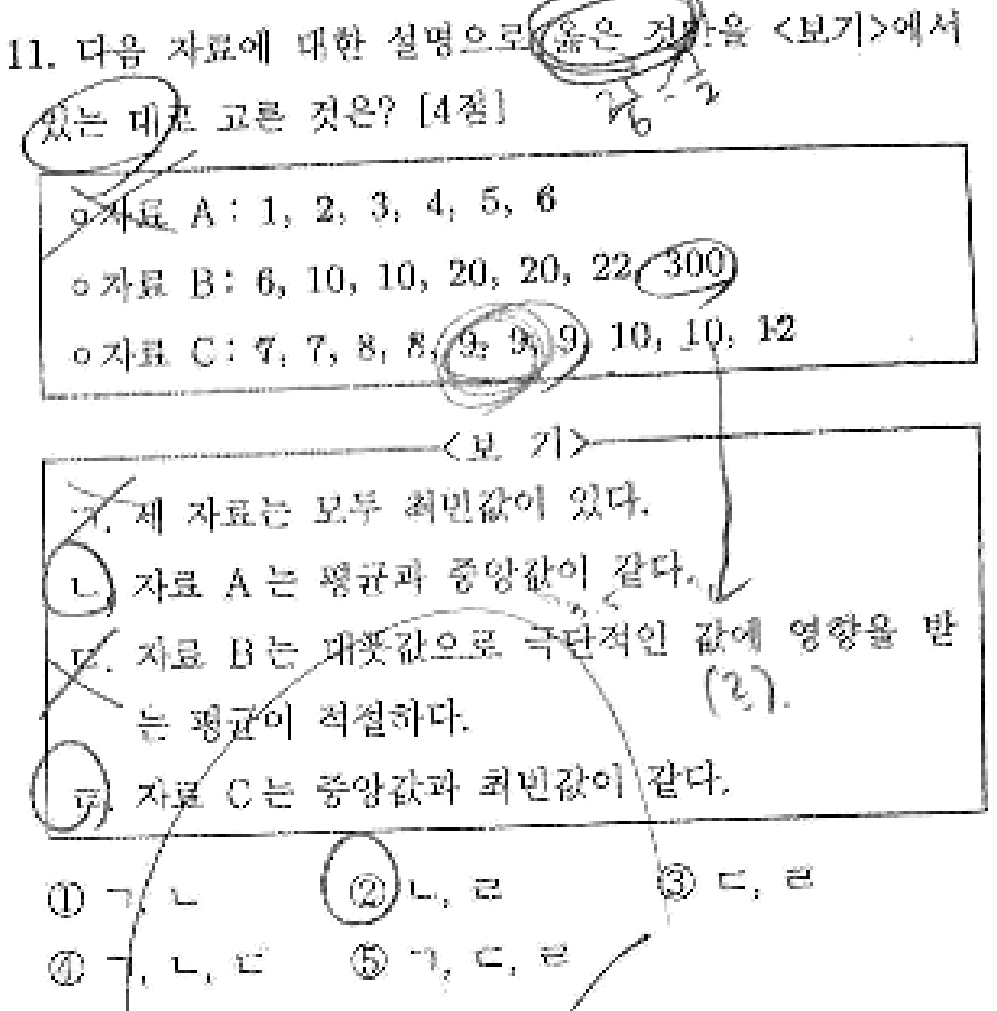 11. 다음 자료에 대한 설명으로 옳은 것만을 <보기>에서
있는 대로 고른 것은? [4점]
○자료 A : 1, 2, 3, 4, 5, 6
○자료 B : 6, 10, 10, 20, 20, 22, 300
○자료 C : 7, 7, 8, 8, 9, 9, 9, 10, 10, 12
<보 기>
ㄱ. 세 자료는 모두 최빈값이 있다.
ㄴ. 자료 A는 평균과 중앙값이 같다.
ㄷ. 자료 B는 대푯값으로 극단적인 값에 영향을 받
는 평균이 적절하다.
ㄹ. 자료 C는 중앙값과 최빈값이 같다.
① ㄱ, ㄴ ② ㄴ, ㄹ ③ ㄷ, ㄹ
④ ㄱ, ㄴ, ㄷ ⑤ ㄱ, ㄷ, ㄹ